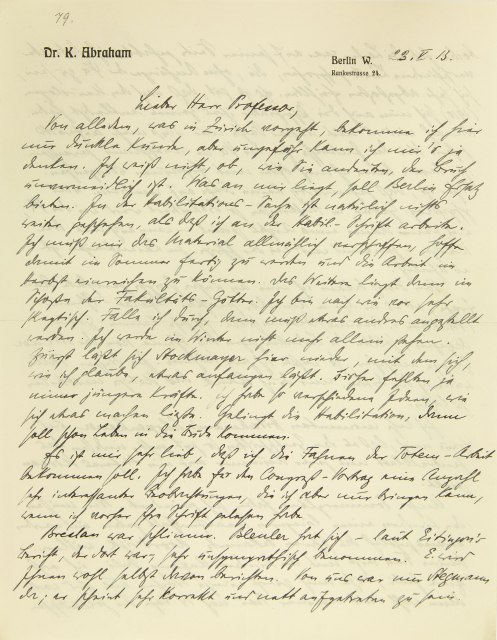 79.
Dr. K. Abraham
Berlin W. 23. V. 13.
Rankestrasse 24.
Lieber Herr Professor,
Von alledem, was in Zürich vorgeht, bekomme ich hier
nur dunkle Kunde, aber ungefähr kann ich mir's ja
denken. Ich weiß nicht, ob, wie Sie andeuten, der Bruch
unvermeidlich ist. Was an mir liegt, soll Berlin Ersatz
bieten. In der Habilitations-Sache ist natürlich nichts
weiter geschehen, als daß ich an der Habil-Schrift arbeite.
Ich muß mir das Material allmählich verschaffen, hoffe
damit im Sommer fertig zu werden und die Arbeit im
Herbst einreichen zu können. Das Weitere liegt dann im
Schoße der Fakultäts-Götter. Ich bin nach wie vor sehr
skeptisch. Falle ich durch, dann muß etwas anderes angestellt
werden. Ich werde im Winter nicht mehr allein stehen.
Zuerst läßt sich Stockmayer hier nieder, mit dem sich,
wie ich glaube, etwas anfangen läßt. Bisher fehlten ja
immer jüngere Kräfte. Ich habe so verschiedene Ideen, wie
sich etwas machen ließe. Gelingt die Habilitation, dann
soll schon Leben in die Bude kommen.
Es ist mir sehr lieb, daß ich die Fahnen der Totem-Arbeit
bekommen soll. Ich habe für den Congreß-Vortrag eine Anzahl
sehr interessanter Beobachtungen, die ich aber nur bringen kann,
wenn ich vorher Ihre Schrift gelesen habe.
Breslau war schlimm. Bleuler hat sich - laut Eitingon's
Bericht, der dort war, sehr unsympathisch benommen. E. wird
Ihnen wohl selbst davon berichten. Von uns war nur Stegmann
da; er scheint sehr korrekt und nett aufgetreten zu sein.